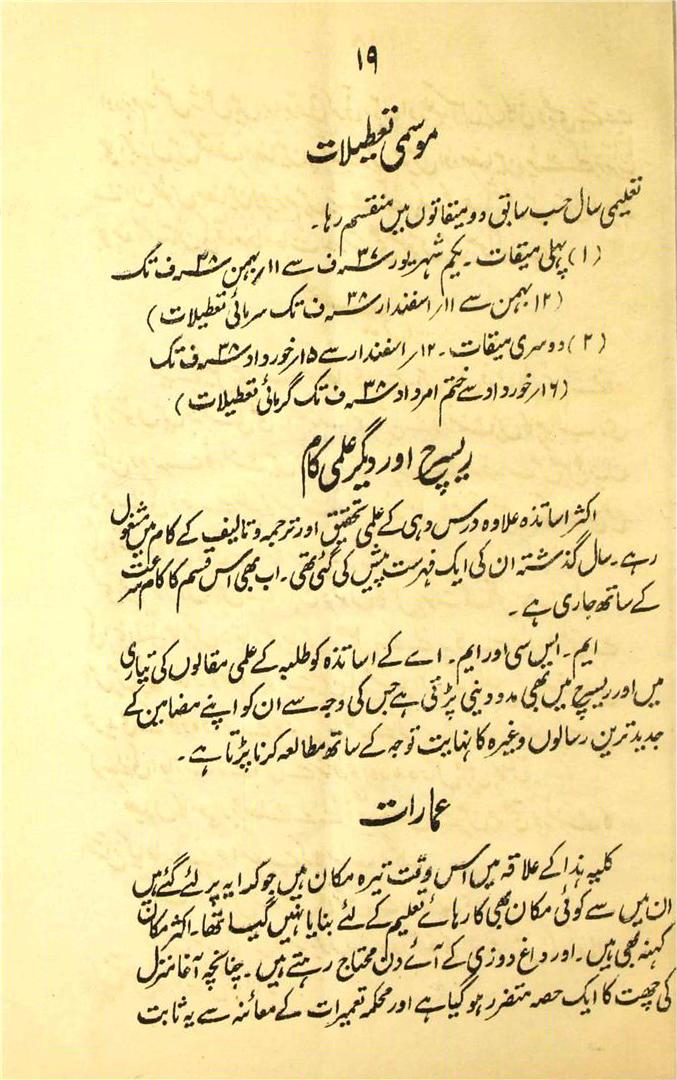 ۱۹
موسمی تعطیلات
تعلیمی سال حسب سابق دو میقاتوں میں منقسم رہا۔
(۱) پہلی میقات۔ یکم شہریور ۳۷؁ف سے ۱۱؍بہمن ۳۸؁ف تک
(۱۲ بہمن سے ۱۱؍اسفندار ۳۸؁ف تک سرمائی تعطیلات)
(۲) دوسری میقات۔ ۱۲؍اسفندار سے ۱۵؍خورداد ۳۸؁ف تک
(۱۶؍خورداد سے ختم امرداد ۳۸؁ف تک گرمائی تعطیلات)
ریسرچ اور دیگر علمی کام
اکثر اساتذہ علاوہ درس دہی کے علمی تحقیق اور ترجمہ و تالیف کے کام میں مشغول
رہے۔ سال گذشتہ ان کی ایک فہرست پیش کی گئی تھی۔ اب بھی اس قسم کا کام سرعت
کے ساتھ جاری ہے۔
ایم۔ ایس سی اور ایم۔ اے کے اساتذہ کو طلبہ کے علمی مقالوں کی تیاری
میں اور ریسرچ میں بھی مدد دینی پڑتی ہے جس کی وجہ سے ان کو اپنے مضامین کے
جدید ترین رسالوں وغیرہ کا نہایت توجہ کے ساتھ مطالعہ کرنا پڑتا ہے۔
عمارات
کلیہ ہذا کے علاقہ میں اس وقت تیرہ مکان ہیں جو کرایہ پر لئے گئے ہیں
ان میں سے کوئی مکان بھی کارہائے تعلیم کے لئے بنایا نہیں گیا تھا۔ اکثر مکان
کہنہ بھی ہیں۔ اور داغ دوزی کے آئے دن محتاج رہتے ہیں۔ چنانچہ آغا منزل
کی چھت کا ایک حصہ متضرر ہو گیا ہے اور محکمہ تعمیرات کے معائنہ سے یہ ثابت